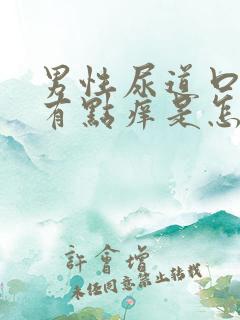 男性尿道口
有點痒是怎
許會增
未經同意禁止轉載